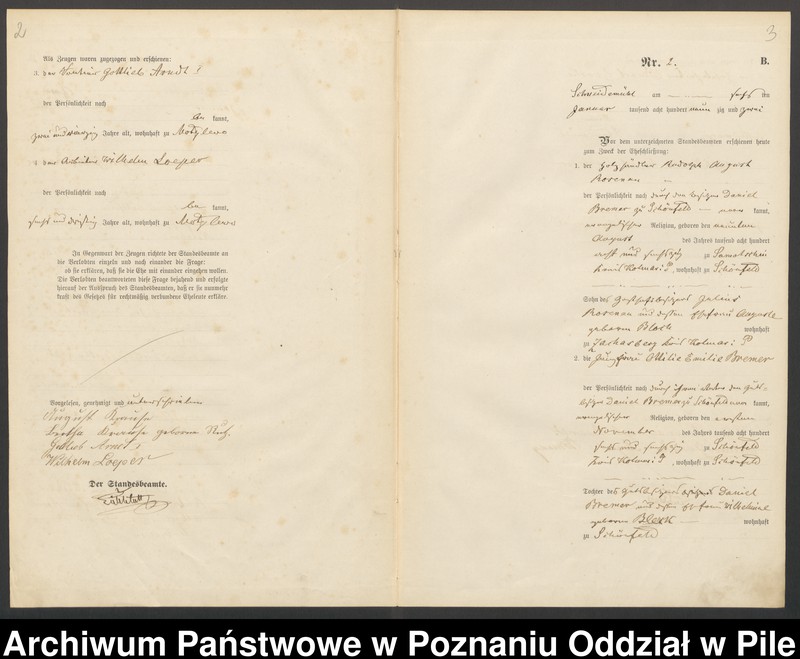 2
Als Zeugen waren zugezogen und erschienen:
3. der Gottlieb Arndt
der Persönlichkeit nach
be kannt,
zwei und zwanzig Jahre alt, wohnhaft zu Motylewo
4. der Arbeiter Wilhelm Loeper
der Persönlichkeit nach
be kannt,
fünf und dreißig Jahre alt, wohnhaft zu Motylewo
In Gegenwart der Zeugen richtete der Standesbeamte an
die Verlobten einzeln und nach einander die Frage:
ob sie erklären, daß sie die Ehe mit einander eingehen wollen.
Die Verlobten beantworteten diese Frage bejahend und erfolgte
hierauf der Ausspruch des Standesbeamten, daß er sie nunmehr
kraft des Gesetzes für rechtmäßig verbundene Eheleute erkläre.
Vorgelesen, genehmigt und unterschrieben
August Krause
Krause geborene
Gottlieb Arndt
Wilhelm Loeper
Der Standesbeamte.
3
Nr. 2. B.
Schneidemühl am den
Januar tausend acht hundert neun zig und zwei
Vor dem unterzeichneten Standesbeamten erschienen heute
zum Zweck der Eheschließung:
1. der Holzhändler Rudolph August
Rosenau
der Persönlichkeit nach durch den Besitzer Daniel
Bremer zu Schönfeld kannt,
evangelischer Religion, geboren den neunten
August des Jahres tausend acht hundert
und sechszig zu Samotschin
Kreis Kolmar i. P., wohnhaft zu Schönfeld
Sohn des Gasthofsbesitzers Julius
Rosenau und dessen Ehefrau Auguste
geborene Block wohnhaft
zu Jankasberg Kreis Kolmar i. P.
2. die Jungfrau Ottilie Emilie Bremer
der Persönlichkeit nach durch ihren Vater den Guts-
besitzer Daniel Bremer zu Schönfeld kannt,
evangelischer Religion, geboren den ersten
November des Jahres tausend acht hundert
und sechszig zu Schönfeld
Kreis Kolmar i. P., wohnhaft zu Schönfeld
Tochter des Gutsbesitzers Daniel
Bremer und dessen Ehefrau Wilhelmine
geborene Bleck wohnhaft
zu Schönfeld
Archiwum Państwowe w Poznaniu Oddział w Pile